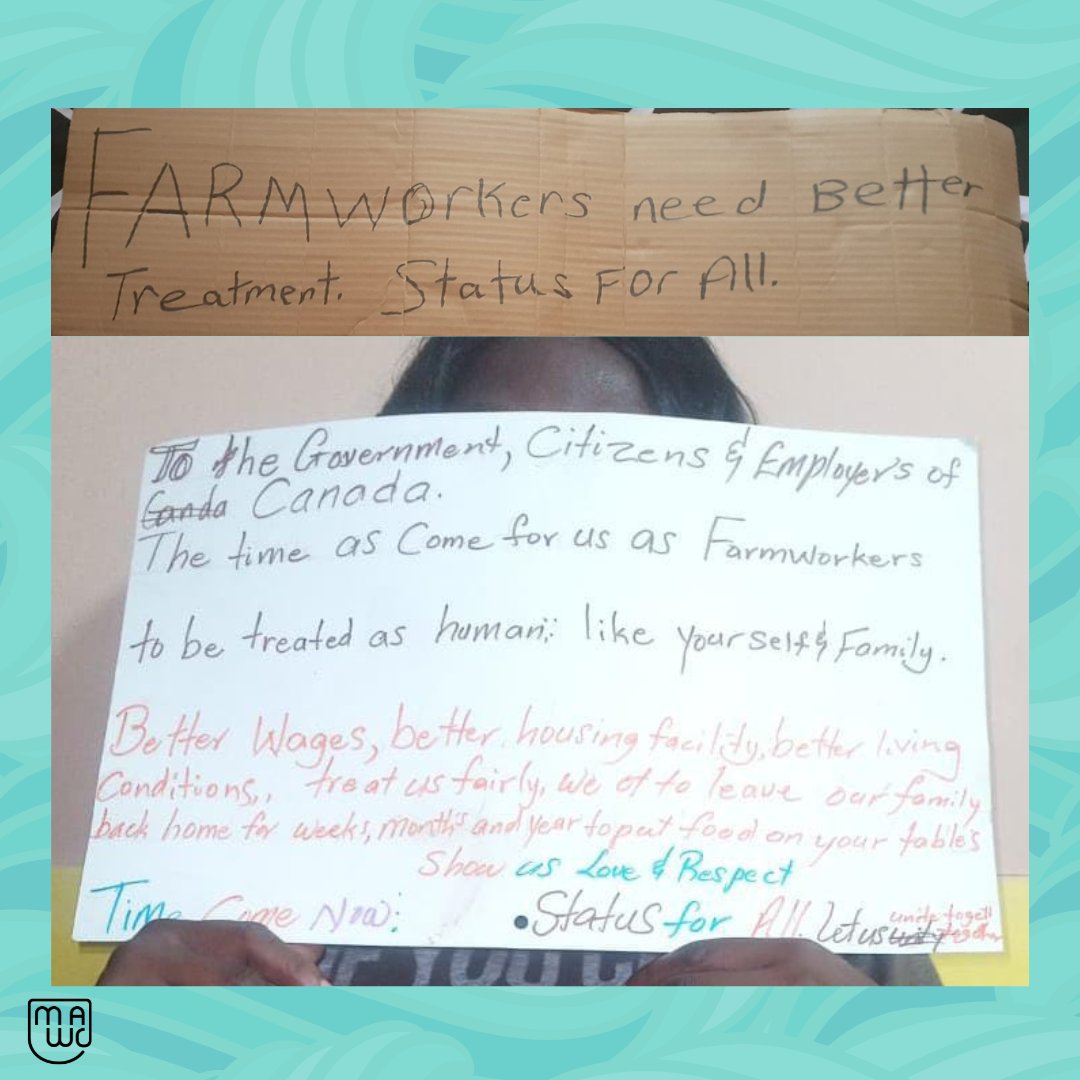 FARMWORkers need Better
Treatment. Status For All.
To the Government, Citizens & Employer's of
Canda Canada.
The time as Come for us as Farmworkers
to be treated as human: like yourself & Family.
Better Wages, better housing facility, better living
Conditions,, treat us fairly, we of to leave our family
back home for weeks, month's and year to put food on your table's
Show us Love & Respect
Time Come Now:
• Status for All. let us unity together
unite togeth
F YOU C
MAWC